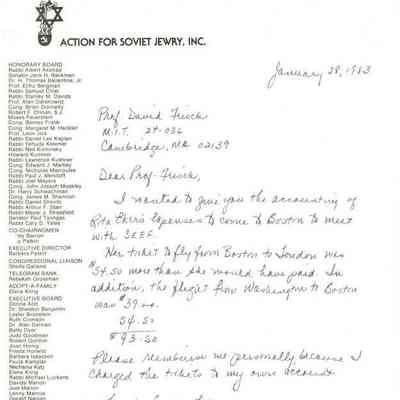 ACTION FOR SOVIET JEWRY, INC.
January 28, 1983
HONORARY BOARD
Rabbi Albert Axelrad
Senator Jack H. Backman
Dr. H. Thomas Ballantine, Jr.
Prof. Ethu Bergman
Rabbi Samuel Chiel
Rabbi Stanley M. Davids
Prof. Alan Dershowitz
Cong. Brian Donnelly
Robert F. Drinan, S.J.
Moses Feuerstein
Cong. Barney Frank
Cong. Margaret M. Heckler
Prof. Leon Jick
Rabbi Daniel Lee Kaplan
Rabbi Yehuda Kelemer
Rabbi Neil Kominsky
Howard Kummer
Rabbi Lawrence Kushner
Cong. Edward J. Markey
Cong. Nicholas Mavroules
Rabbi Paul J. Menitoff
Rabbi Joel Meyers
Cong. John Joseph Moakley
Dr. Harry Schwachman
Cong. James M. Shannon
Rabbi Daniel Shevitz
Rabbi Arthur F. Starr
Rabbi Meyer J. Strassfeld
Senator Paul Tsongas
Rabbi Cary D. Yales
CO-CHAIRMEN
EXECUTIVE DIRECTOR
Barbara Palant
CONGRESSIONAL LIAISON
Sheila Galland
TELEGRAM BANK
Rebekah Grossman
ADOPT-A-FAMILY
Elena Kling
EXECUTIVE BOARD
Donna Arzt
Dr. Sheldon Benjamin
Lester Bronstein
Ruth Clonson
Dr. Alan Gelman
Betty Dyer
Judy Goodman
Robert Gordon
Joan Honig
Freda Horwitz
Barbara Isaacson
Paula Kaminer
Nechama Katz
Elena Kling
Rabbi Michael Luckens
Davida Manon
Joel Manon
Lenny Marcus
Prof. David Frisch
M.I.T. 24-036
Cambridge, Ma 02139
Dear Prof. Frisch,
I wanted to give you the accounting of
Rita Eker's expenses to come to Boston to meet
with
Her ticket to fly from Boston to London was
$54.50 more than she would have paid. In
addition, the flight from Washington to Boston
was $39.00.
54.50
$93.50
Please reimburse me personally because I
charged the tickets to my own account.